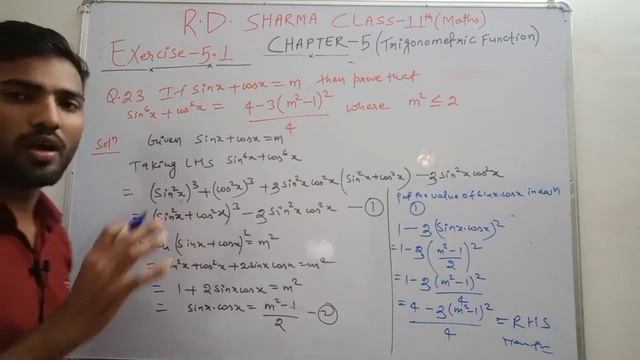 R.D. SHARMA CLASS-11th (Maths)
Exercise-5.1 CHAPTER-5 (Trigonometric Function)
Q.23 If sinx + cosx = m then prove that
sin⁶x + cos⁶x = 4-3(m²-1)²/4 where m² ≤ 2
Solⁿ Given sinx + cosx = m
Taking LHS sin⁶x + cos⁶x
= (sin²x)³ + (cos²x)³ + 3sin²x cos²x (sin²x + cos²x) - 3sin²x cos²x
= (sin²x + cos²x)³ - 3sin²x cos²x — ①
(sinx + cosx)² = m²
= sin²x + cos²x + 2sinx cosx = m²
= 1 + 2sinx cosx = m²
= sinx.cosx = m²-1/2 — ②
put the value of sinx.cosx in eqn
①
1 - 3(sinx.cosx)²
= 1 - 3(m²-1/2)²
= 1 - 3(m²-1)²/4
= 4 - 3(m²-1)²/4 = RHS